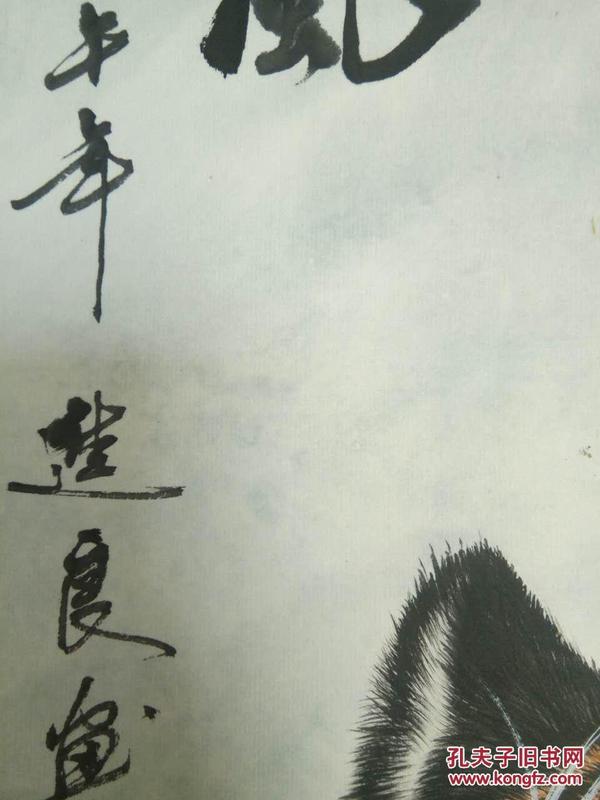 風
午年
進良画
孔夫子旧书网
www.kongfz.com